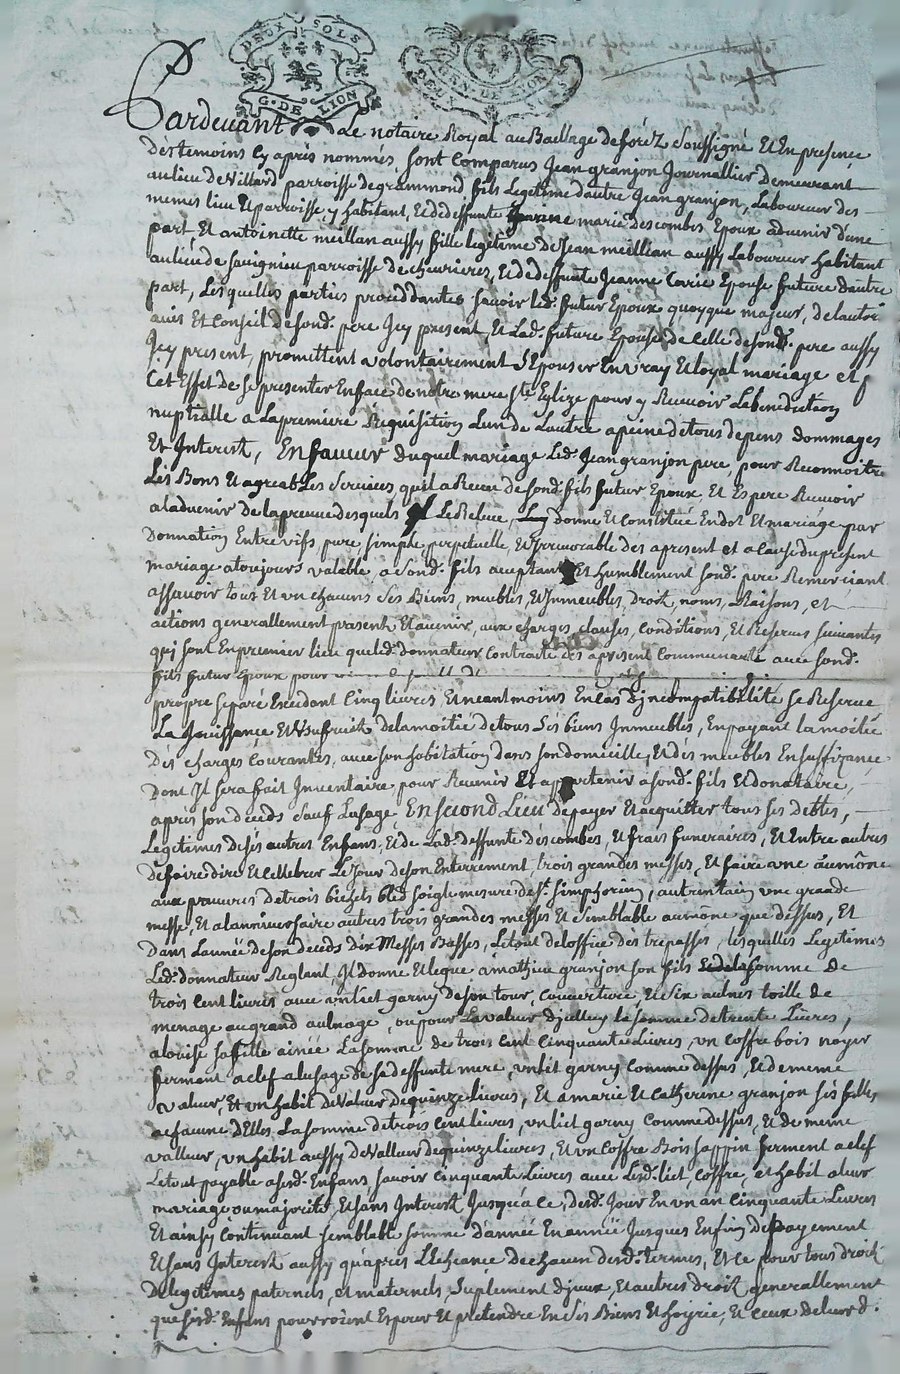 DEUX SOLS
G. DE LION
DEUX GEN. DE LION
Pardevant Le notaire Royal au Baillage de forèz Soussigné Et En presence
Des temoins Cy après nommés sont Comparus Jean granjon Journallier Demeurant
au lieu de Villard parroisse de grammond, fils Legitime d'autre Jean granjon, Laboureur des
memes lieu Et parroisse, y habitant, Et de deffunte marie descombes Epoux advenir d'une
part Et antoinette meillan aussy fille legitime de Jean meillian aussy Laboureur habitant
au lieu de savignieu parroisse de chevrieres, Et de deffunte Jeanne Epouse future d'autre
part, Lesquelles parties proceddantes savoir led. futur Epoux quoyque majeur, de l'autor.
avis Et Conseil de sond. pere Jcy present, Et Lad. future Epouse de Celle de sond. pere aussy
Jcy present, promettent volontairement S'Epouser En vray Et loyal mariage et
Cet Effet de se presenter En face de notre mere ste Eglize pour y Recevoir La benediction
nuptialle a La premiere Requisition L'un de L'autre a peine de tous depens dommages
Et Interest, En faveur duquel mariage Led. Jean granjon pere, pour Reconnoitre
Les Bons Et agreables Services qu'il a Receu de sond. fils futur Epoux, Et Espere Recevoir
a l'advenir de la preuve desquels Le Releve, donne Et Constitué En dot Et mariage par
Donnation Entre vifs, pure, simple, perpetuelle, Et Jrrevocable dès apresent et a Cause du present
mariage a toujours valable a sond. fils acceptant Et humblement sond. pere Remerciant
assavoir tous Et un chacuns Ses Biens, meubles, Et Jmmeubles, Droit, noms, Raisons, et
actions generallement present Et avenir, aux charges, clauses, Conditions, Et Reserves suivantes
qui sont En premier lieu que led. donnateur Contracte dès apresent Communauté avec sond.
fils futur Epoux pour
propre separé Excedant Cinq livres Et neantmoins En Cas d'jncompatibilité se Reserve
La Jouissance Et Usufruit de la moitié de tous Ses biens Jmmeubles, En payant la moitié
Des charges Courantes, avec son habitation dans son domicille, Et des meubles En suffizance
Dont Jl sera fait Jnventaire pour Revenir Et appartenir a sond. fils Et donataire,
après son deceds Sauf L'usage, En second Lieu de payer Et acquitter tous ses debtes,
Legitimes de ses autres Enfans, Et de Lad. deffunte descombes, Et frais funeraires, Et Entre autres
de faire dire Et cellebrer Le Jour de son Enterrement, trois grandes messes, Et faire une aumône
aux pauvres de trois bichets bled soigle mesure de st. simphorien, au trentain une grande
messe, Et a l'anniversaire autres trois grandes messes Et semblable aumône que dessus, Et
Dans L'année de son deceds dix Messes Basses, Le tout de l'office des trepassés, lesquelles Legitimes
Led. donnateur Reglant, Jl donne Et legue a mathieu granjon son fils la somme de
trois Cent livres avec un liet garny de son tour, Couverture, Et six aulnes toille de
menage au grand aulnage, ou pour La valeur d'jcelluy la somme de trente Livres,
a loise sa fille ainée La somme de trois Cent Cinquante Livres, un Coffre bois noyer
fermant a clef a l'usage de sad. deffunte mere, un liet garny Comme dessus, Et de meme
valeur, Et un habit de Valeur de quinze livres, Et a marie Et Catherine granjon ses filles
a chacune d'Elles La somme de trois Cent livres, un liet garny Comme dessus, Et de meme
valleur, un habit aussy de Valleur de quinze livres, Et un Coffre Bois sappin ferment a clef
Le tout payable a sesd. Enfans, savoir Cinquante Livres avec Lesd. liet, Coffre, et habit a leur
mariage ou majorité, Et sans Interest Jusqu'à Ce, dud. Jour En un an Cinquante Livres
Et ainsy Continuant semblable somme d'année En année Jusques En fin de payement
Et sans Interest aussy qu'après L'Echeance de chacun desd. termes, Et Ce pour tous droit
De legitimes paternels, et maternels, suplement d'jceux, Et autres droit generallement
que sesd. Enfans pourroient Esperer Et pretendre En ses Biens Et hoyrie, Et Ceux de leur d.